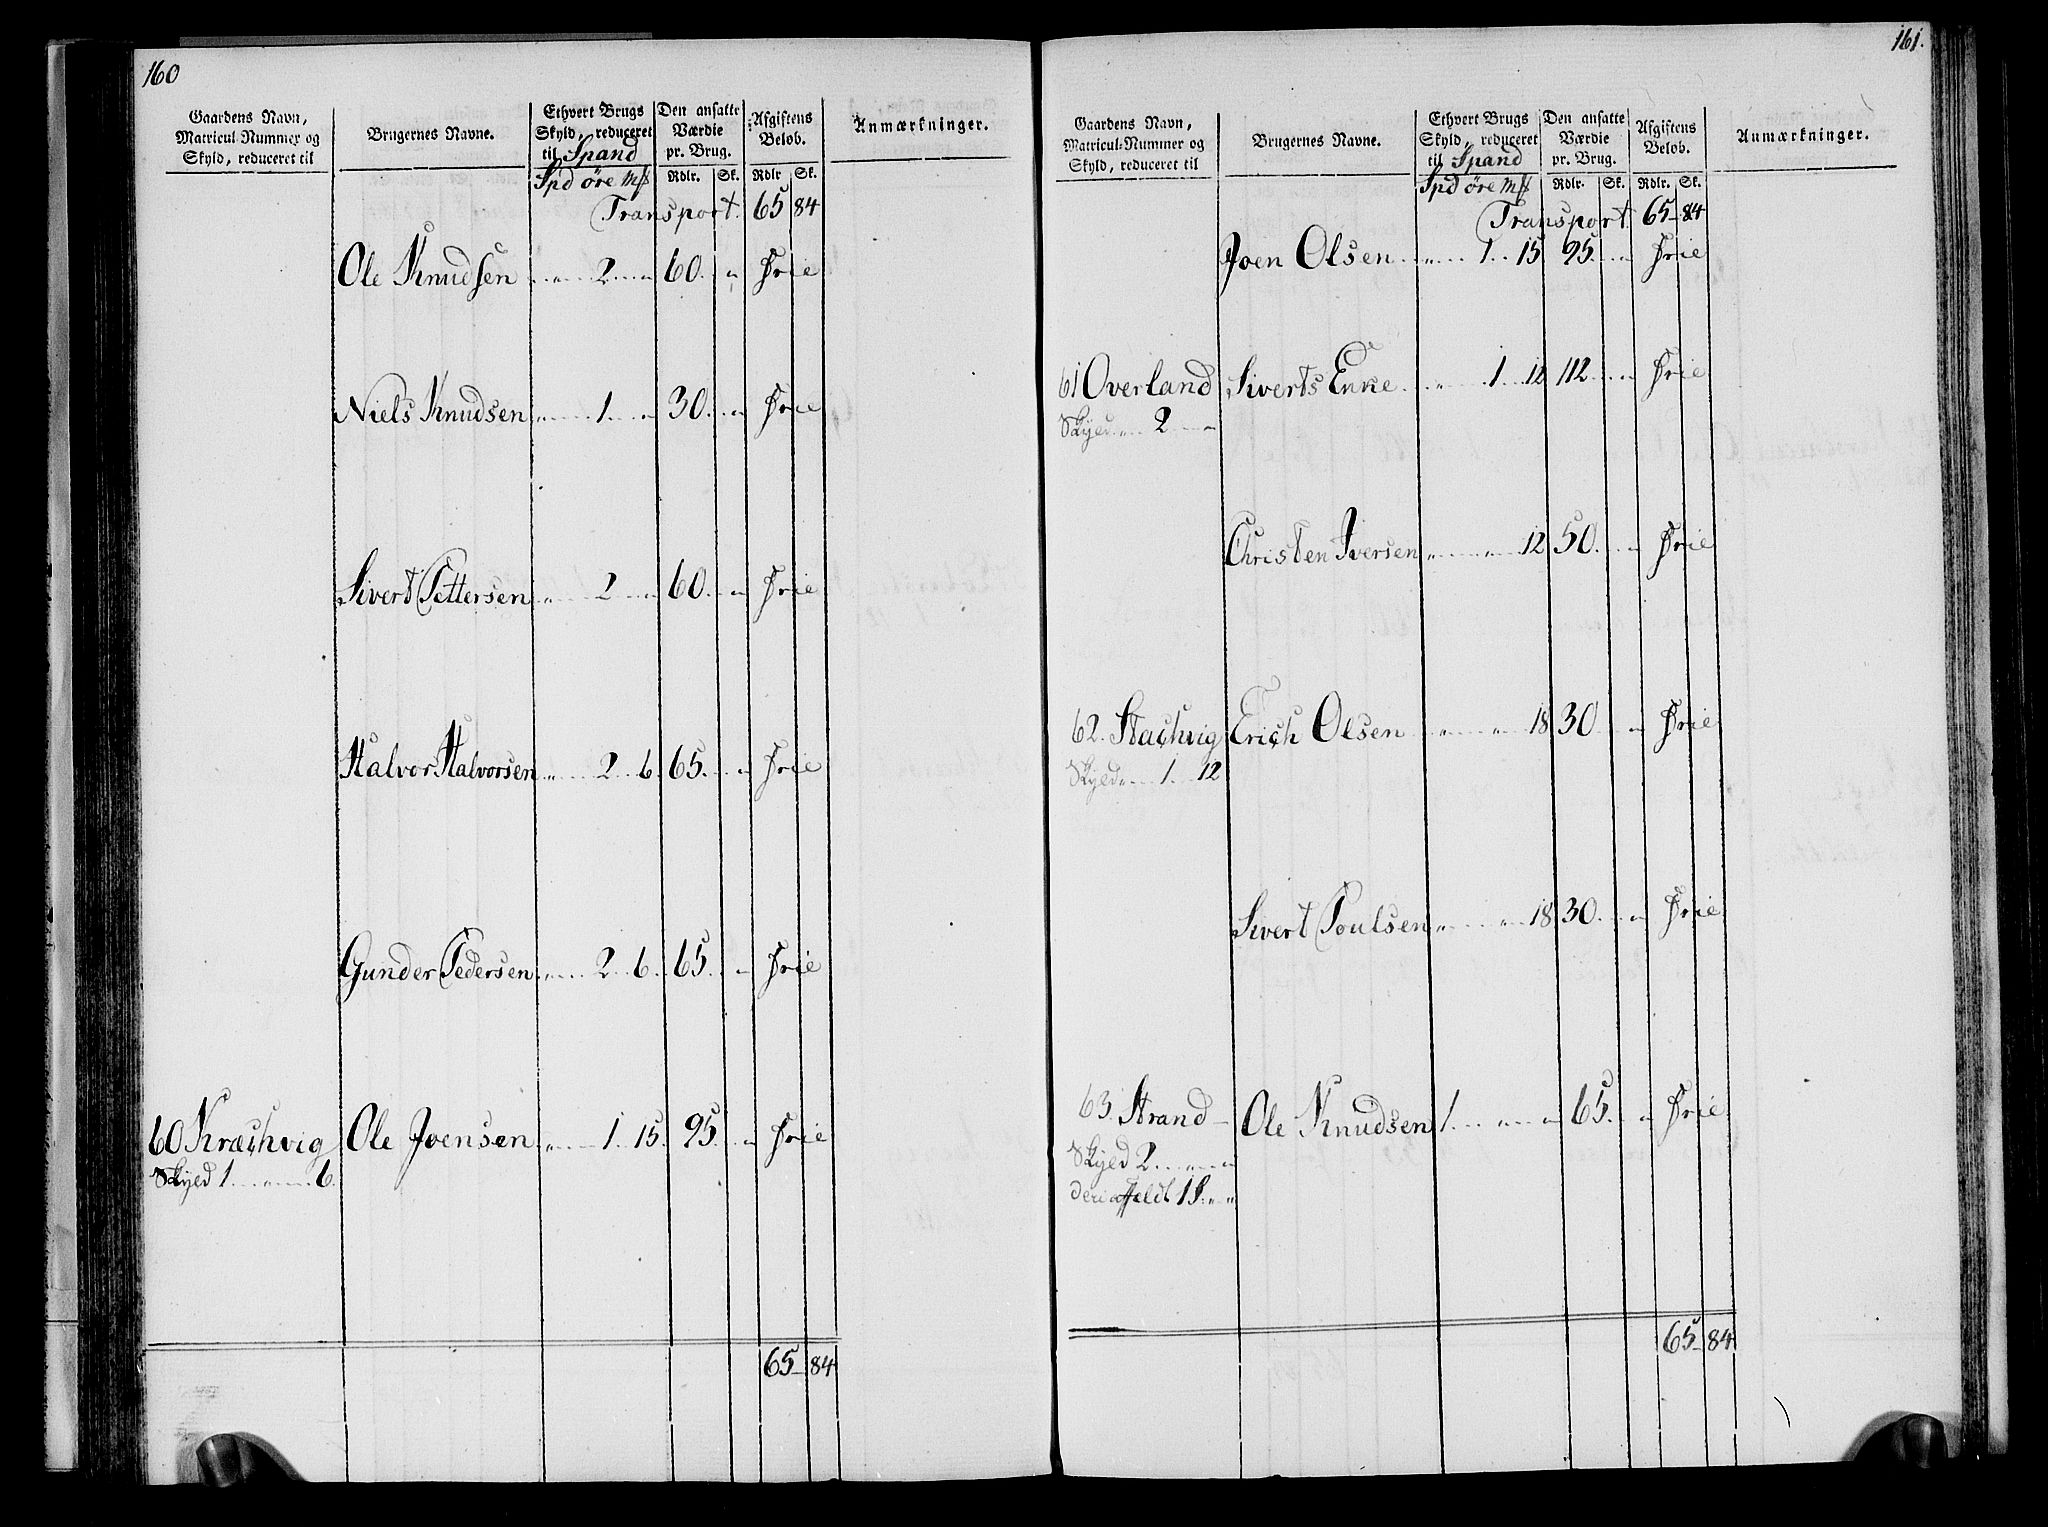 160
Gaardens Navn, Matricul-Nummer og Skyld, reduceret til
Brugernes Navne.
Ethvert Brugs Skyld, reduceret til Spand
Den ansatte Værdie pr. Brug.
Afgiftens Beløb.
Anmærkninger.
Spd öre m Rdlr. Sk. Rdlr Sk.
Transport. 65 84
Ole Knudsen " 2 " 60. " Frie
Niels Knudsen " 1 " 30. " Frie
Sivert Pettersen " 2 " 60. " Frie
Halvor Halvorsen " 2 6. 65. " Frie
Gunder Pedersen " 2 6. 65. " Frie
60 Kræchvig Ole Joensen " 1 15. 95. " Frie
Skyld 1 " 6.
65 84
161.
Gaardens Navn, Matricul-Nummer og Skyld, reduceret til
Brugernes Navne.
Ethvert Brugs Skyld, reduceret til Spand
Den ansatte Værdie pr. Brug.
Afgiftens Beløb.
Anmærkninger.
Spd öre m Rdlr. Sk. Rdlr. Sk.
Transport. 65 84
Joen Olsen " 1 15 95. " Frie
61 Overland Siverts Enke " 1 12 112 " Frie
Skyld " 2 "
Christen Iversen " " 12 50. " Frie
62. Stachvig Erich Olsen " " 18 30. " Frie
Skyld " 1 12
Sivert Poulsen " " 18 30. " Frie
63. Strand Ole Knudsen 1 " " 65. " Frie
Skyld 2 " "
65 84